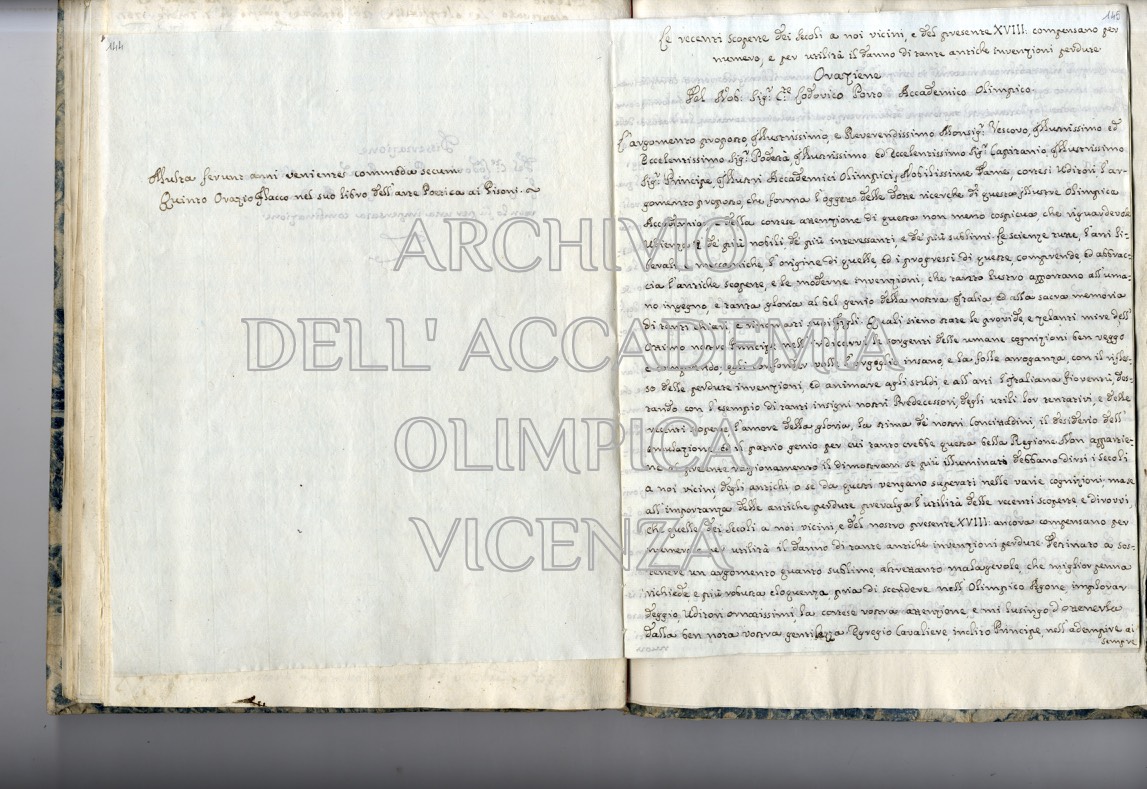 144
Multa ferunt anni venientes commoda secum
Quinto Orazio Flacco nel suo libro dell'arte Poetica ai Pisoni.
145
Le recenti scoperte dei secoli a noi vicini, e del presente XVIII: compensano per
numero, e per utilità il danno di tante antiche invenzioni perdute
Orazione
Del Nob: Sigr Cte Lodovico Porto Accademico Olimpico
L'argomento proposto, Illustrissimo, e Reverendissimo Monsigr Vescovo, Illustrissimo ed
Eccelentissimo Sigr Podestà, Illustrissimo ed Eccelentissimo Sigr Capitanio, Illustrissimo
Sigr Principe, Illustri Accademici Olimpici, Nobilissime Dame, cortesi Uditori, l'ar-
gomento proposto, che forma l'oggetto delle dotte ricerche di questa Illustre Olimpica
Accademia, e della cortese attenzione di questa non meno cospicua, che riguardevole
Udienza è de' più nobili, de' più interessanti, e de' più sublimi. Le scienze tutte, l'arti li-
berali, e meccaniche, l'origine di quelle, ed i progressi di queste, comprende, ed abbrac-
cia l'antiche scoperte, e le moderne invenzioni, che tanto lustro apportano all'uma-
no ingegno, e tanta gloria al bel genio della nostra Italia ed alla sacra memoria
di tanti chiari, e rinomati suoi figli. Quali sieno state le provide, e zelanti mire dell'
Ottimo nostro Principe nell'indicarvi le sorgenti delle umane cognizioni ben veggo
e comprendo, egli confonder volle l'orgoglio insano, e la folle arroganza, con il rifles-
so delle perdute invenzioni, ed animare agli studi, e all'arti l'Italiana Gioventù, des-
tando con l'esempio di tanti insigni nostri Predecessori, degli utili lor tentativi, e delle
recenti scoperte l'amore della gloria, la stima de' nostri Concittadini, il desiderio dell'
emulazione, ed il patrio genio per cui tanto crebbe questa bella Regione. Non appartie-
ne al presente ragionamento il dimostrarvi se più illuminati debbano dirsi i secoli
a noi vicini, degli antichi o se da questi vengano superati nelle varie cognizioni, ma se
all'importanza delle antiche perdute prevalga l'utilità delle recenti scoperte, e dirovvi
che quelle dei secoli a noi vicini, e del nostro presente XVIII: ancora compensano per
numero, e utilità il danno di tante antiche invenzioni perdute. Destinato a sos-
tenere un argomento quanto sublime, altrettanto malagevole, che miglior penna
richiede, e più robusta eloquenza, pria di scendere nell'Olimpico Agone implorar
deggio Uditori ornatissimi, la cortese vostra attenzione, e mi lusingo d'ottenerla
dalla ben nota vostra gentilezza. Egregio Cavaliere, inclito Principe, nell'adempire ai
sempre
ARCHIVIO
DELL'ACCADEMIA
OLIMPICA
VICENZA